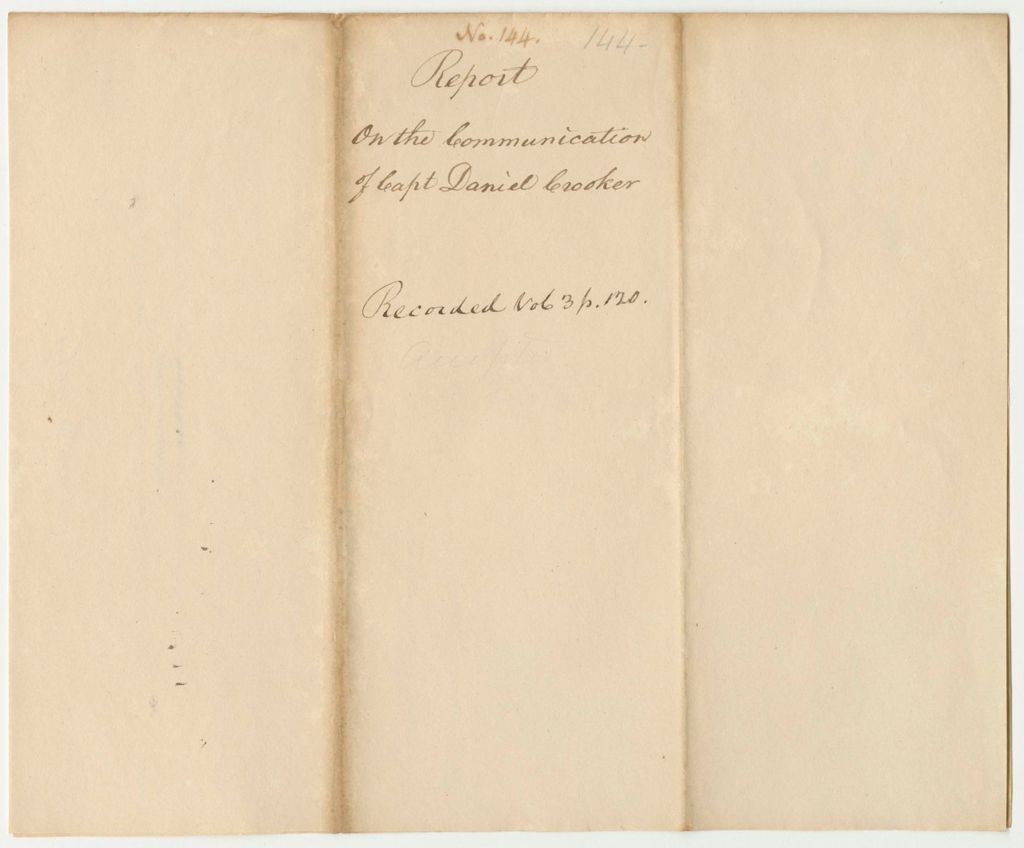 No. 144. 144-
Report
On the Communication
of Capt Daniel Crooker
Recorded Vol 3 p. 120.